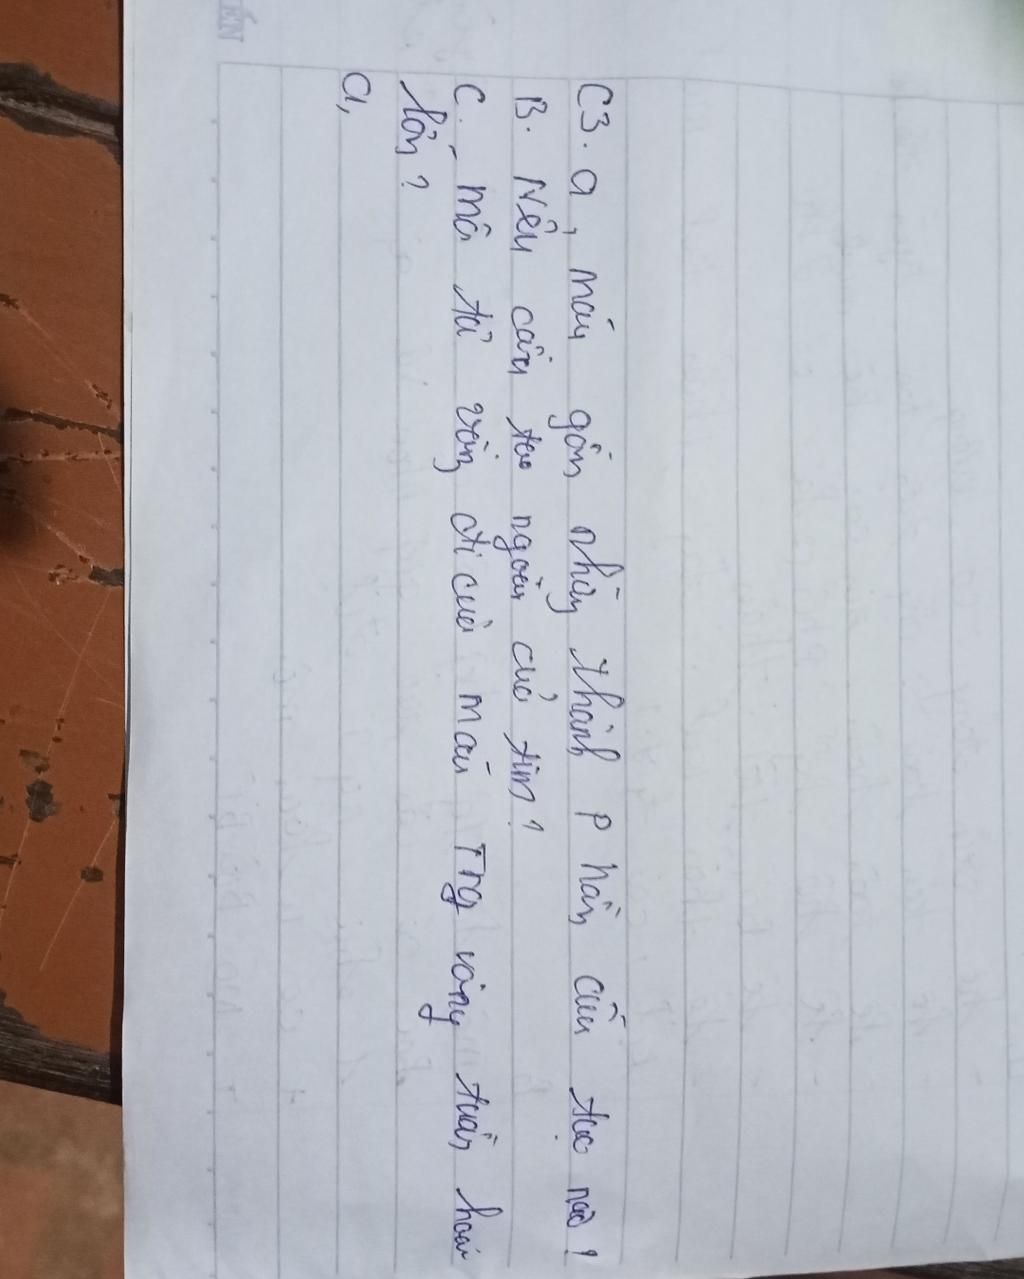 C3. a, máu gồm những thành phần cấu tạo nào?
B. Nêu cấu tạo ngoài của tim?
C. mô tả vòng đi của máu Trg vòng tuần hoàn
lớn?
a,